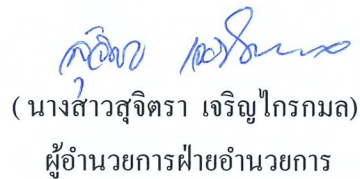 ( นางสาวสุจิตรา เจริญไกรกมล)
ผู้อำนวยการฝ่ายอำนวยการ